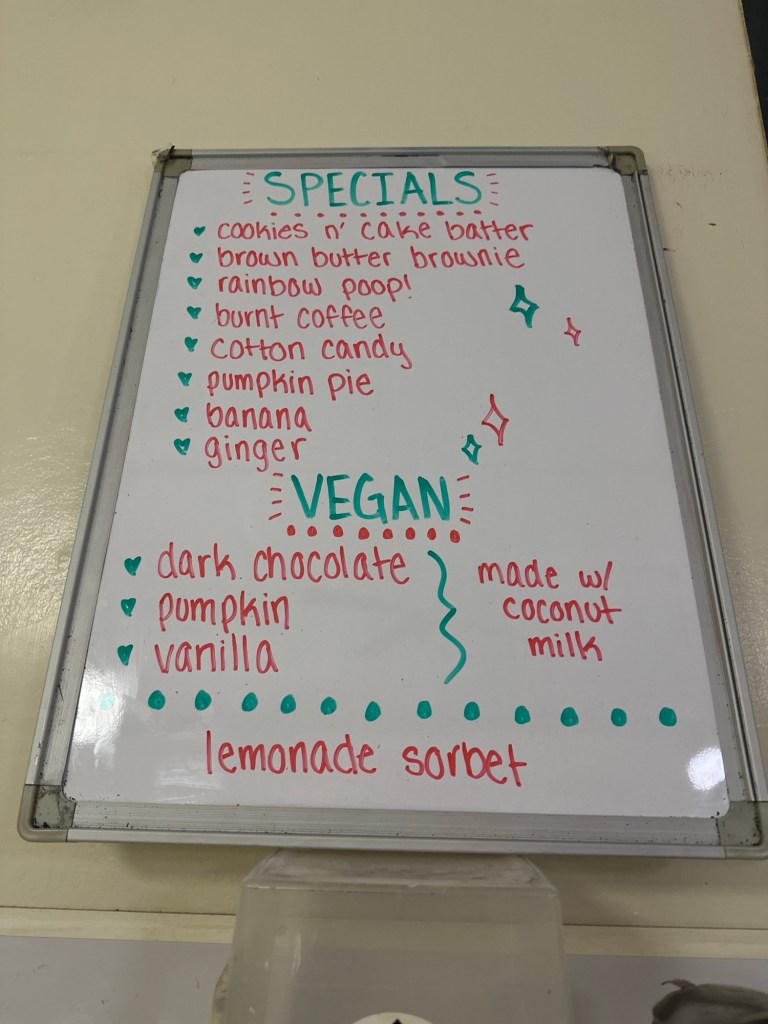 SPECIALS
cookies n' cake batter
brown butter brownie
rainbow poop!
burnt coffee
cotton candy
pumpkin pie
banana
ginger
VEGAN
dark chocolate
pumpkin
vanilla
made w/
coconut
milk
lemonade sorbet